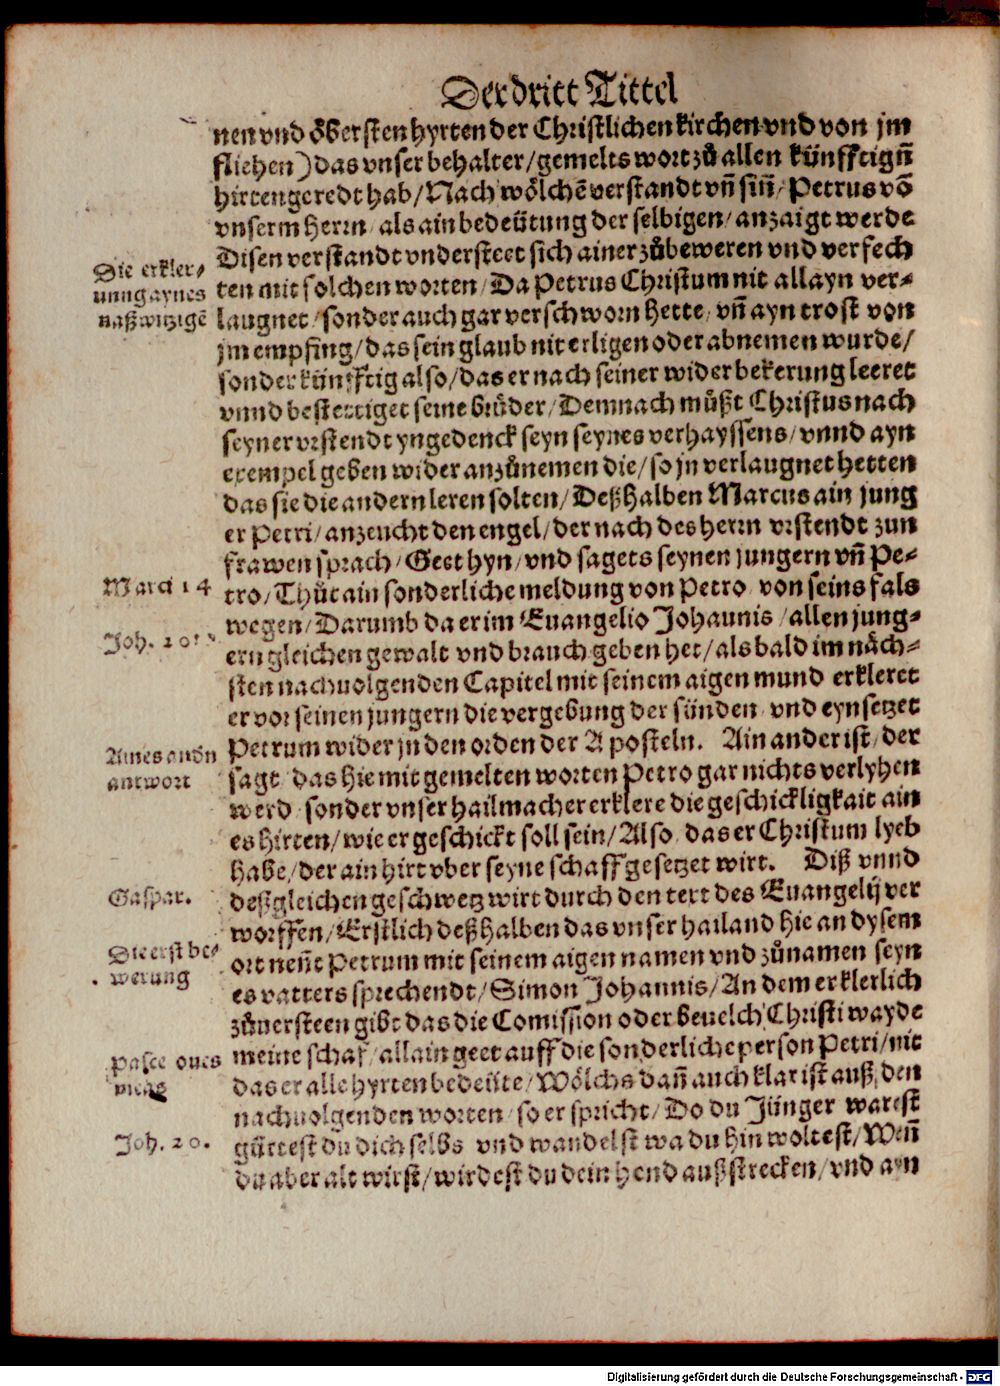 Der dritt Tittel
nen vnd öbersten hyrten der Christlichen kirchen vnd von jm
fliehen) das vnser behalter / gemelts wort zů allen künfftigñ
hirten geredt hab / Nach wölchẽ verstandt vñ siñ / Petrus võ
vnserm herrn / als ain bedeütung der selbigen / anzaigt werde
Die erkler/
unng aynes
naßwitzigẽ
Disen verstandt vndersteet sich ainer zůbeweren vnd verfech
ten mit solchen worten / Da Petrus Christum nit allayn ver-
laugnet / sonder auch gar verschworn hette / vñ ayn trost von
jm empfing / das sein glaub nit erligen oder abnemen wurde /
sonder künfftig also / das er nach seiner widerbekerung leeret
vnnd bestettiget seine brůder / Demnach můßt Christus nach
seyner vrstendt yngedenck seyn seynes verhayssens / vnnd ayn
exempel geben wider anzůnemen die / so jn verlaugnet hetten
das sie die andern leren solten / Deßhalben Marcus ain jung
er Petri / anzeucht den engel / der nach des herrn vrstendt zun
frawen sprach / Geet hyn / vnd sagets seynen jungern vñ Pe-
Marci 14
tro / Thůt ain sonderliche meldung von Petro von seins fals
wegen / Darumb da er im Euangelio Johannis / allen jung-
Joh. 20.
ern gleichen gewalt vnd brauch geben het / als bald im näch-
sten nachuolgenden Capitel mit seinem aigen mund erkleret
er vor seinen jungern die vergebung der sünden vnd eynsetzet
Aines andn
antwort
Petrum wider jn den orden der Aposteln. Ain ander ist / der
sagt das hie mit gemelten worten Petro gar nichts verlyhen
werd sonder vnser hailmacher erklere die geschickligkait ain
es hirten / wie er geschickt soll sein / Also das er Christum lyeb
habe / der ain hirt vber seyne schaff gesetzet wirt. Diß vnnd
Gaspar.
deßgleichen geschwetz wirt durch den text des Euangelij ver
worffen / Erstlich deßhalben das vnser hailand hie an dysem
Die erst be-
werung
ort neñt Petrum mit seinem aigen namen vnd zůnamen seyn
es vatters sprechendt / Simon Johannis / An dem erklerlich
zůuersteen gibt das die Comission oder beuelch Christi wayde
Pasce oues
meas
meine schaf / allain geet auff die sonderliche person Petri / nit
das er alle hyrten bedeüte / Wölchs dañ auch klar ist auß den
nachuolgenden worten / so er spricht / Do du Jünger warest
Joh. 20.
gürtest du dich selbs vnd wandelst wa du hin woltest / Weñ
du aber alt wirst / wirdest du dein hend außstrecken / vnd ayn
Digitalisierung gefördert durch die Deutsche Forschungsgemeinschaft - DFG